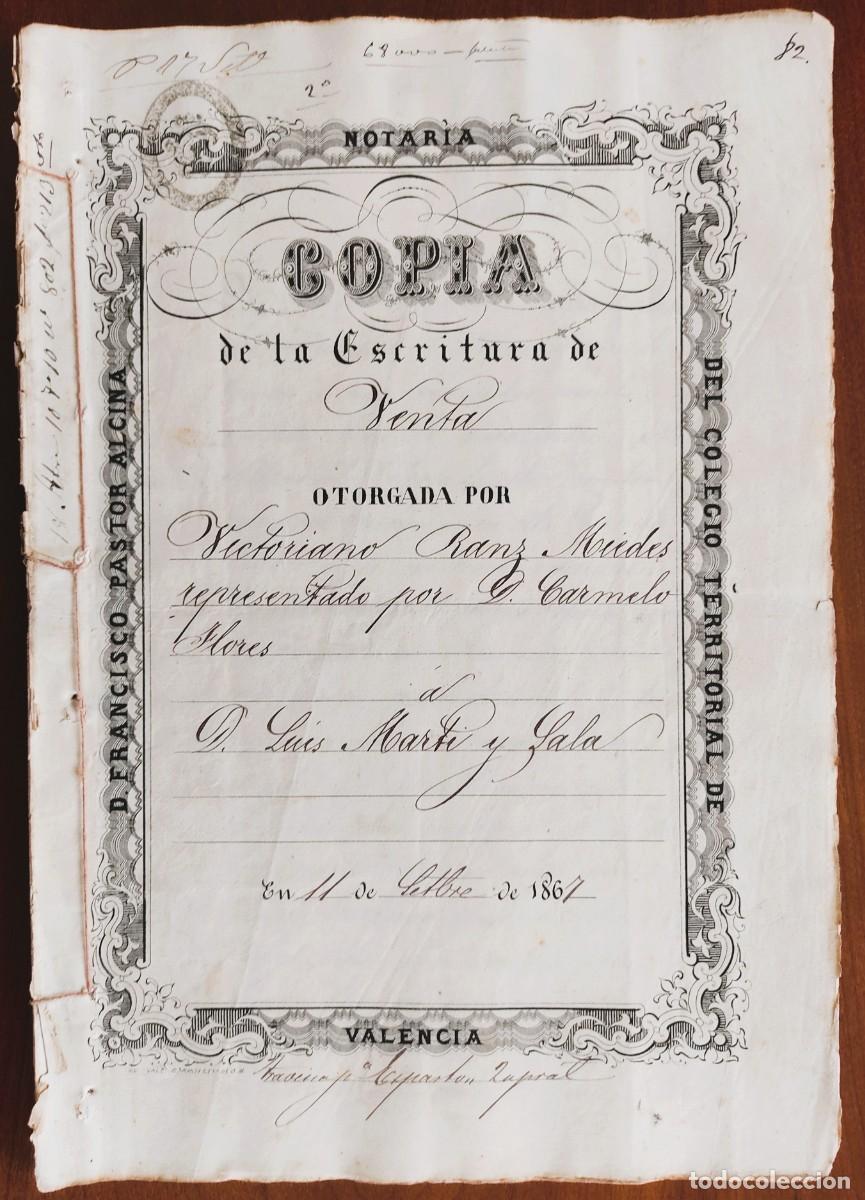 68000
82.
2º
NOTARÍA
COPIA
de la Escritura de
Venta
OTORGADA POR
Victoriano Ranz Miedes
representado por D. Carmelo
Flores
á
D. Luis Marti y Sala
En 11 de Setbre de 1867
VALENCIA
D. FRANCISCO PASTOR ALCINA
DEL COLEGIO TERRITORIAL DE
todocoleccion